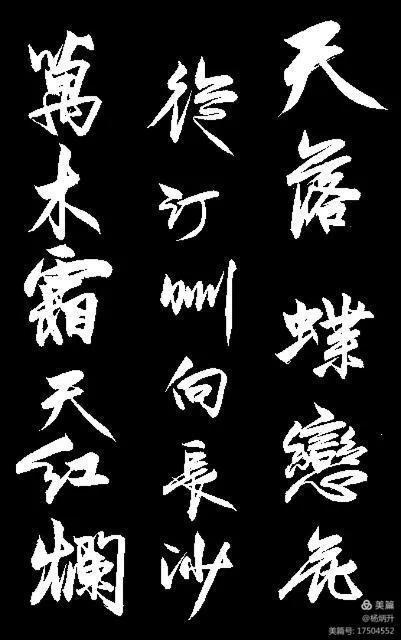 天落蝶戀花
從汀洲向長沙
萬木霜天紅爛
美篇
@杨炳升
美篇号: 17504552